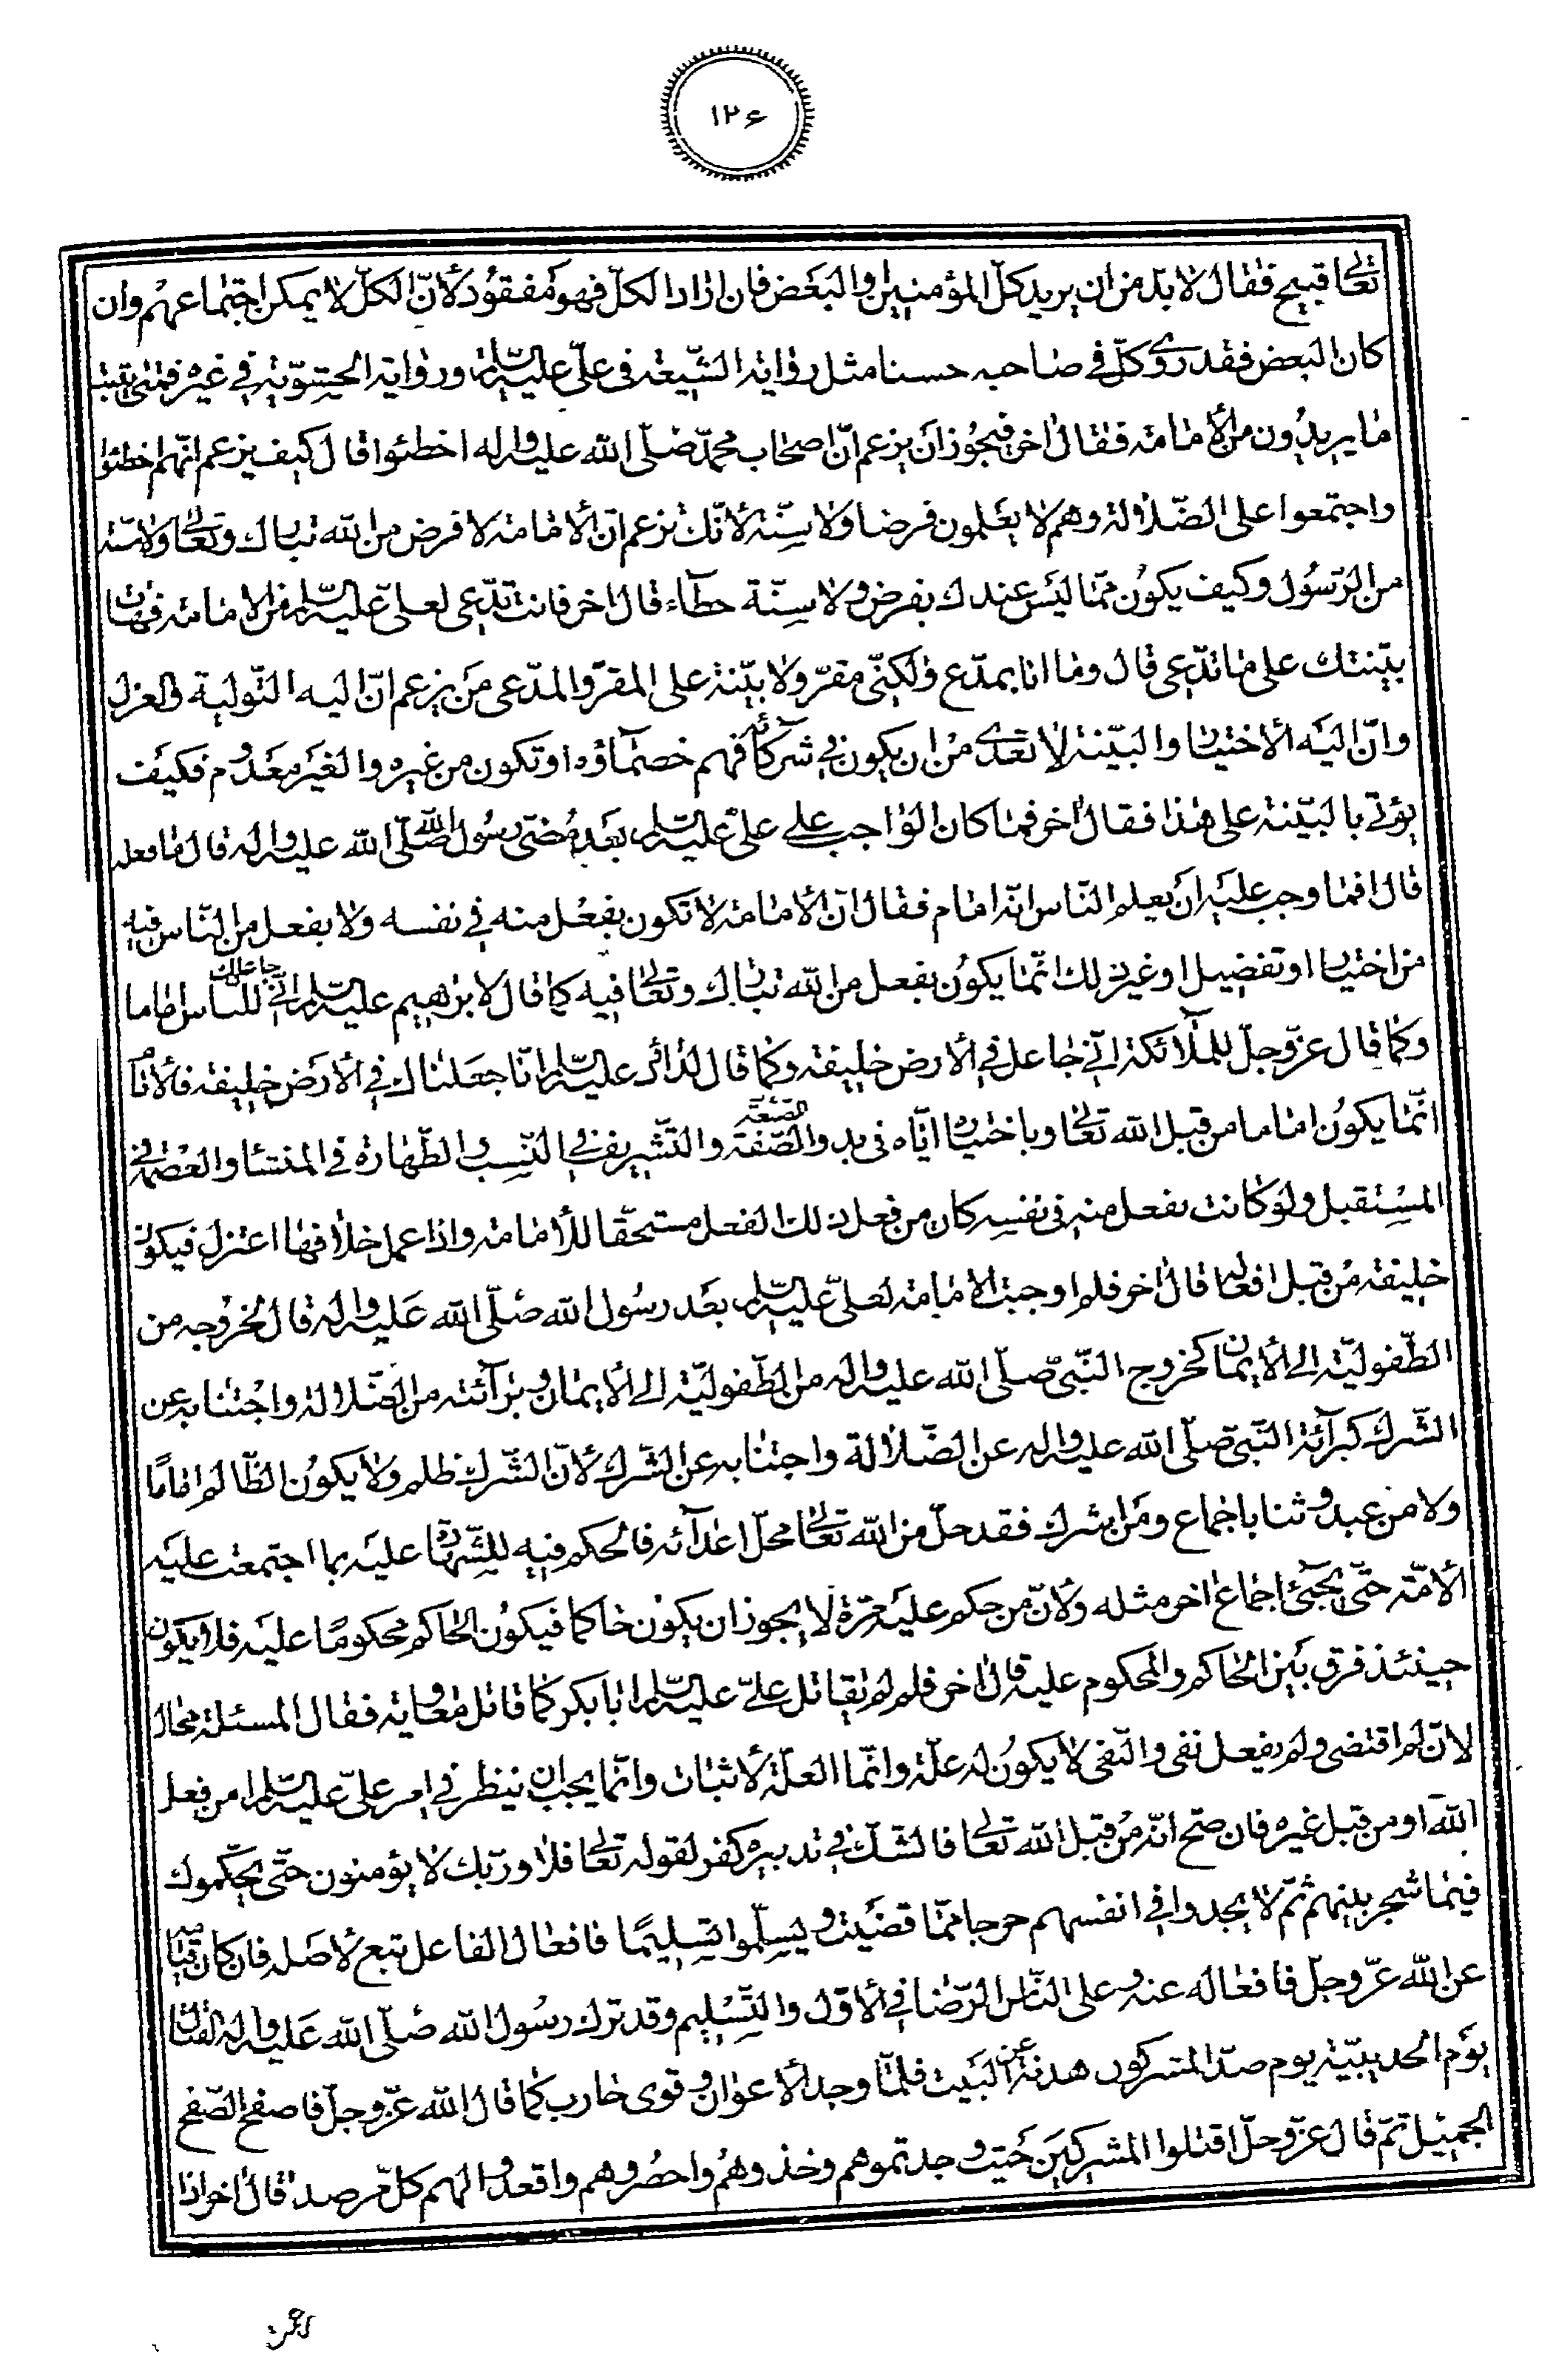 ١٢۶
تعالى قبيح فقال لا بدّ من ان يريد كلّ المؤمنين والبعض فان اراد الكلّ فهو مفقود لأنّ الكلّ لا يمكن اجتماعهم وان
كان البعض فقد روى كلّ في صاحبه حسنا مثل رواية الشّيعة في علىّ عليه السّلم ورواية الحشويّة في غيره فمتى يثبت
ما يريدون من الأمامة فقال اخر فيجوز ان يزعم انّ اصحاب محمّد صلّى الله عليه واله اخطئوا قال كيف يزعم انّهم اخطئوا
واجتمعوا على الضّلالة وهم لا يعلمون فرضا ولا سنّة لأنّك تزعم انّ الأمامة لا فرض من الله تبارك وتعالى ولا سنّة
من الرّسول وكيف يكون ممّا ليس عندك بفرض ولا سنّة خطآء قال اخر فانت تدّعى لعلىّ عليه السّلم من الامامة فهات
بيّنتك على ما تدّعى قال وما انا بمدّع ولكنّى مقرّ ولا بيّنة على المقرّ والمدّعى من يزعم انّ اليه التّولية والعزل
وانّ اليه الأختيار والبيّنة لا تعدى من ان يكون في شركآئه فهم خصمآؤه او تكون من غيره والغير معدوم فكيف
يؤتى بالبيّنة على هذا فقال اخر فما كان الواجب على علىّ عليه السّلم بعد مضى رسول الله صلّى الله عليه واله قال ما فعله
قال افما وجب عليه ان يعلم النّاس انّه امام فقال انّ الأمامة لا تكون بفعل منه في نفسه ولا بفعل من النّاس فيه
من اختيار او تفضيل او غير ذلك انّما يكون بفعل من الله تبارك وتعالى فيه كما قال لابرهيم عليه السّلم انّى جاعلك للنّاس اماما
وكما قال عزّ وجلّ للملآئكة انّى جاعل في الأرض خليفة وكما قال لداود عليه السّلم انّا جعلناك في الأرض خليفة فالأمام
انّما يكون اماما من قبل الله تعالى وباختياره ايّاه في بدو الصّنعة والصّفة والتّشريف في النّسب والطّهارة في المنشاء والعصمة في
المستقبل ولو كانت بفعل منه في نفسه كان من فعل ذلك الفعل مستحقّا للأمامة واذا عمل خلافها اعتزل فيكون
خليفة من قبل افعاله قال اخر فلم اوجبت الامامة لعلىّ عليه السّلم بعد رسول الله صلّى الله عليه واله قال لخروجه من
الطّفوليّة الى الأيمان كخروج النّبىّ صلّى الله عليه واله من الطّفوليّة الى الأيمان وبرآئته من الضّلالة واجتنابه عن
الشّرك كبرآئة النّبىّ صلّى الله عليه واله عن الضّلالة واجتنابه عن الشّرك لأنّ الشّرك ظلم ولا يكون الظّالم اماما
ولا من عبد وثنا باجماع ومن اشرك فقد حلّ من الله تعالى محلّ اعدآئه فالحكم فيه للشّهادة عليه بما اجتمعت عليه
الأمّة حتّى يجيئ اجماع اخر مثله ولأنّ من حكم عليه مرّة لا يجوز ان يكون حاكما فيكون الحاكم محكوما عليه فلا يكون
حينئذ فرق بين الحاكم والمحكوم عليه قال اخر فلم لم يقاتل علىّ عليه السّلم ابابكر كما قاتل معاوية فقال المسئلة محال
لانّ لم اقتضى ولم يفعل نفى والنّفى لا يكون له علّة وانّما العلّة لأثبات وانّما يجب ان ينظر في امر علىّ عليه السّلم امن فعل
الله او من قبل غيره فان صحّ انّه من قبل الله تعالى فالشّك في تدبيره كفر لقوله تعالى فلا وربّك لا يؤمنون حتّى يحكّموك
فيما شجر بينهم ثمّ لا يجدوا في انفسهم حرجا ممّا قضيت ويسلّموا تسليما فافعال الفاعل تبع لأصله فان كان قيامه
عن الله عزّ وجلّ فافعاله عنه وعلى النّاس الرّضا في الأوّل والتّسليم وقد ترك رسول الله صلّى الله عليه واله القتال
يوم الحديبيّة يوم صدّ المشركون هديه عن البيت فلمّا وجد الأعوان وقوى حارب كما قال الله عزّ وجلّ فاصفح الصّفح
الجميل ثمّ قال عزّ وجلّ اقتلوا المشركين حيث وجدتموهم وخذوهم واحصروهم واقعدوا لهم كلّ مرصد قال اخر اذا